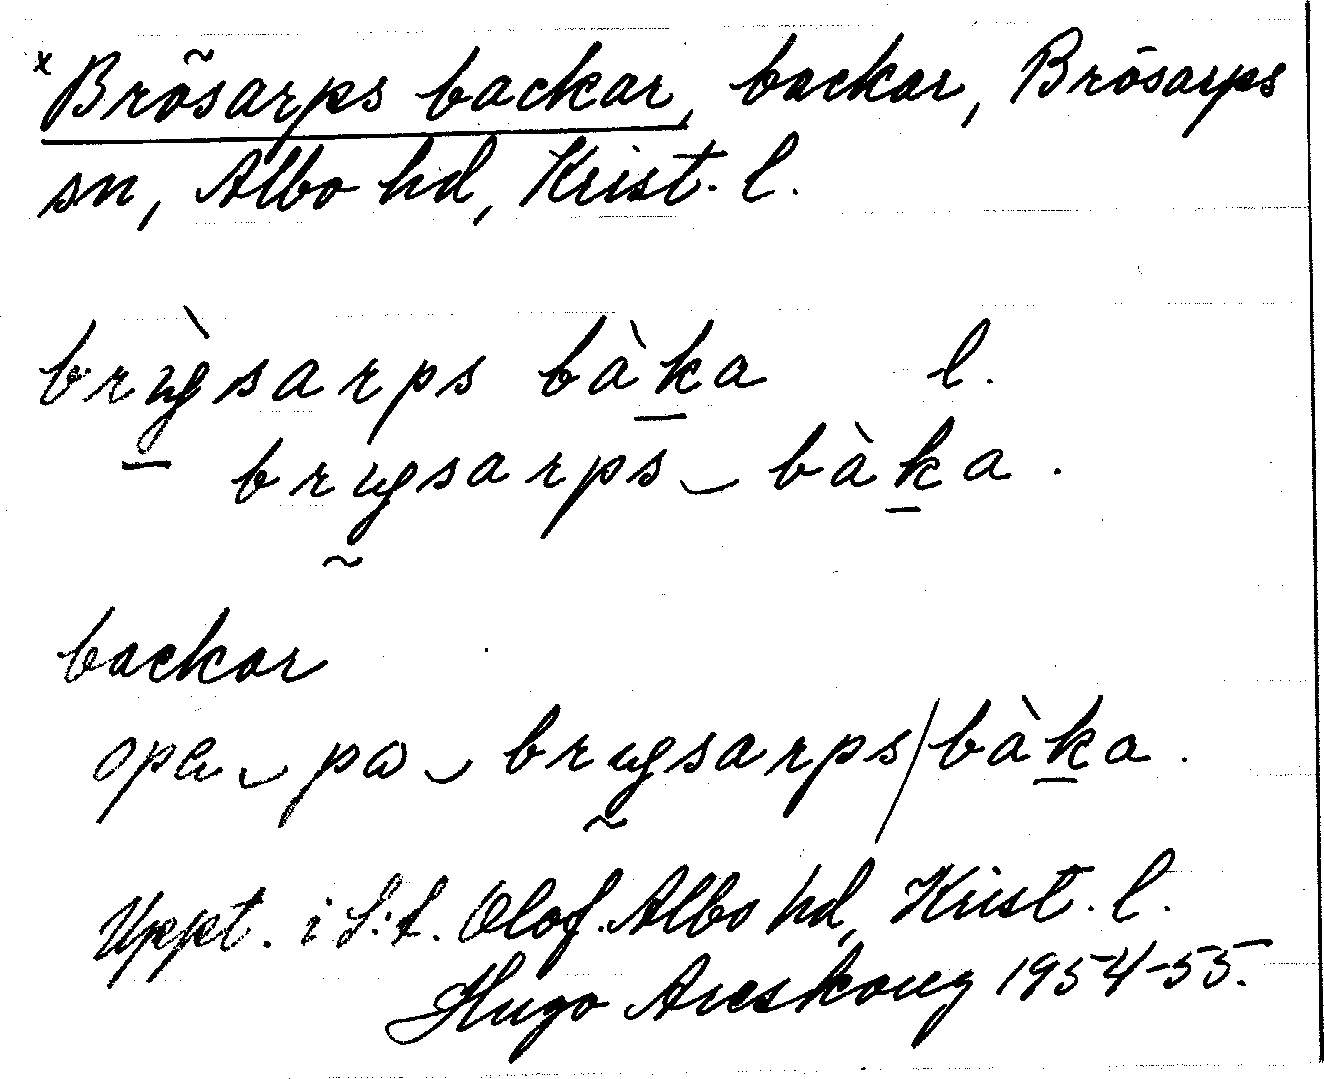 x Brösarps backar, backar, Brösarps
sn, Albo hd, Krist. l.
brỳgsarps bàka l.
brygsarps‿bàka.
backar
opa‿pa‿brygsarps/bàka.
Uppt. i S:t. Olof. Albo hd, Krist. l.
Hugo Areskoug 1954-55.